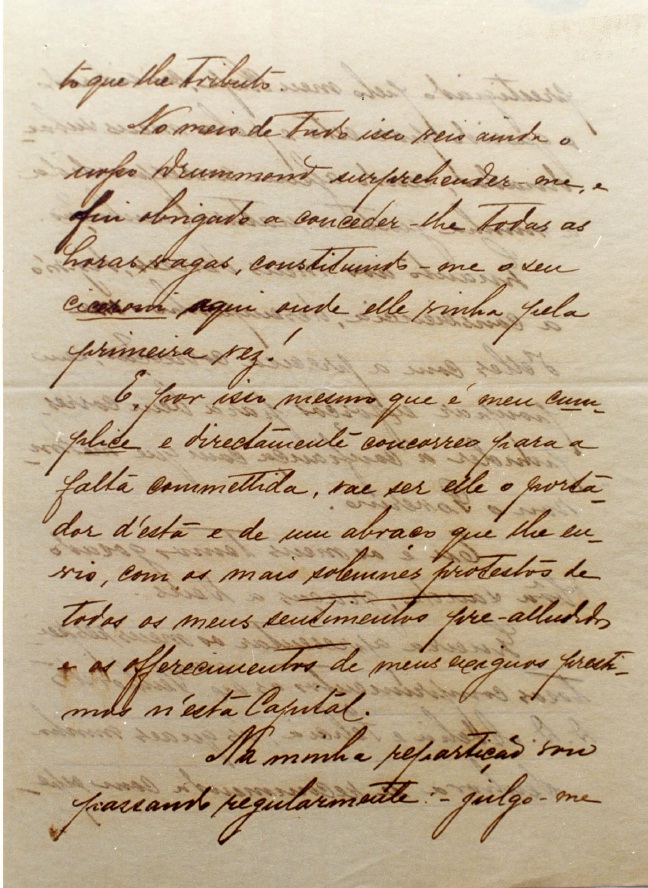 to que lhe tributo.
No meio de tudo isso veis ainda o
nosso Drummond surprehender-me, e
fui obrigado a conceder-lhe todas as
horas vagas, constituindo-me o seu
ciceroni aqui onde elle vinha pela
primeira vez!
E, por isso mesmo que é meu cum-
plice e directamente concorreo para a
falta commettida, vae ser elle o porta-
dor d'esta e de um abraço que lhe en-
vio, com os mais solemnes protestos de
todos os meus sentimentos pre-alludidos
e os offerecimentos de meus exiguos presti-
mos n'esta Capital.
Na minha repartição vou
passando regularmente: - julgo-me